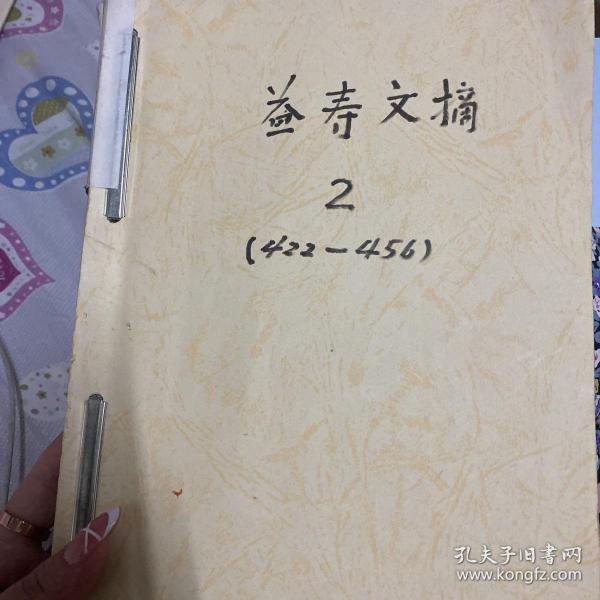 益寿文摘
2
(422-456)
孔夫子旧书网
www.kongfz.com